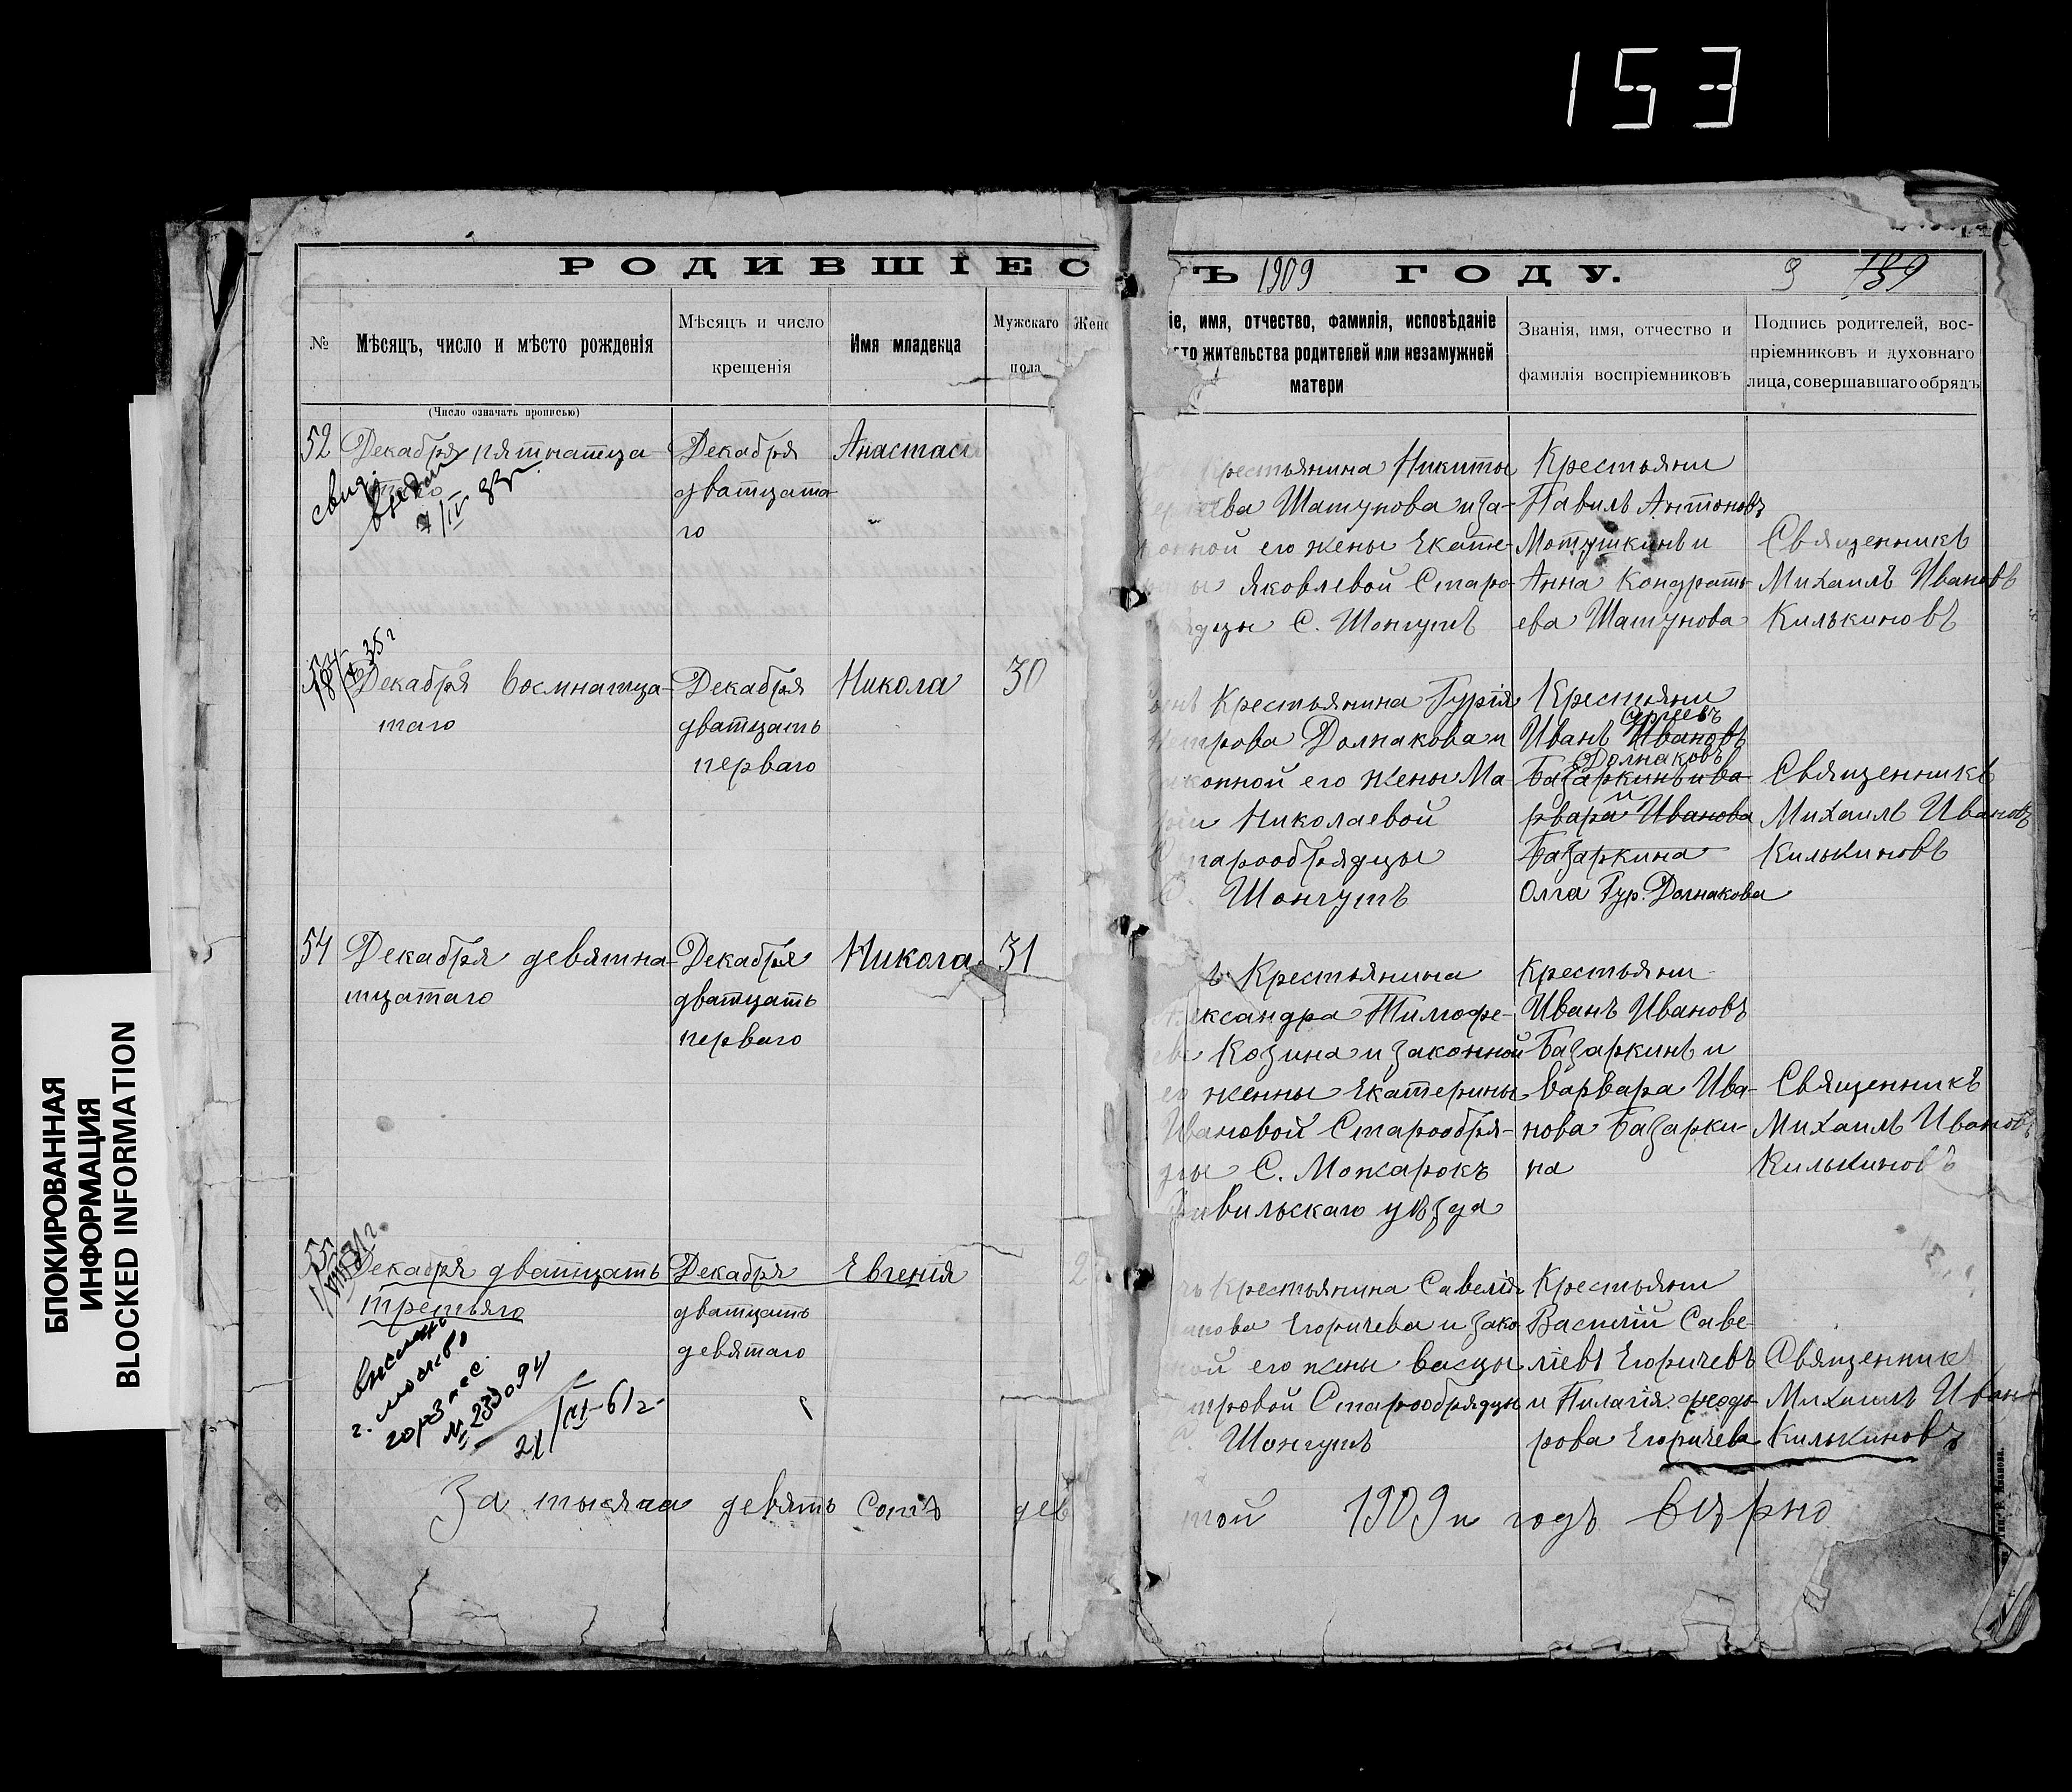 153
РОДИВШІЕС
Ъ 1909 ГОДУ.
9 159
№
Мѣсяцъ, число и мѣсто рожденія
Мѣсяцъ и число
крещенія
Имя младенца
Мужскаго
пола
Женс
іе, имя, отчество, фамилія, исповѣданіе
сто жительства родителей или незамужней
матери
Званія, имя, отчество и
фамилія воспріемниковъ
Подпись родителей, вос-
пріемниковъ и духовнаго
лица, совершавшаго обрядъ
(Число означать прописью)
52 Декабря пятнатца-
7/IV 33г.
Декабря
дватцата
го
Анастасі
крестьянина Никиты
ева Шатунова и за-
конной его жены Екате-
ны Яковлевой Старо-
ядцы С. Шонгутъ
Крестьяни
Павилъ Антоновъ
Мотушкинъ и
Анна Кондрать-
ева Шатунова
Священникъ
Михаилъ Ивановъ
Килькиновъ
35г
Декабря восмнатца-
таго
Декабря
дватцать
перваго
Никола
30
Крестьянина Гурія
Петрова Долнакова и
законной его жены Ма-
ріи Николаевой
Старообрядцы
С. Шонгутъ
Крестьяни
Гуріевъ
Иванъ Ивановъ
Долнаковъ
Базаркинъ и Ва-
и
рвара Иванова
Базаркина
Олга Гур. Долнакова
Священникъ
Михаилъ Ивановъ
Килькиновъ
54 Декабря девятна-
тцатаго
Декабря
дватцать
перваго
Никола
31
ъ Крестьянина
Александра Тимофе-
ева Козина и законной
его женны Екатерины
Ивановой Старообря-
дцы С. Можарокъ
вильскаго уѣзда
Крестьяни
Иванъ Ивановъ
Базаркинъ и
Варвара Ива-
нова Базарки-
на
Священникъ
Михаилъ Ивановъ
Килькиновъ
55
31г.
Декабря дватцать
третьяго
г. москво
горзагс.
№ 233094
21/VI-61г-
Декабря
дватцать
девятаго
Евгенія
2
Крестьянина Савелія
анова Егоричева и зако
ной его жены Васцы
тровой Старообрядцы
С. Шонгутъ
Крестьяни
Василій Саве-
ліевъ Егоричевъ
и Пилагія Феодо-
рова Егоричева
Священникъ
Михаилъ Иван
Килькиновъ
За тысяча девять сотъ дев
той 1909 и годъ вѣрно
БЛОКИРОВАННАЯ
ИНФОРМАЦИЯ
BLOCKED INFORMATION